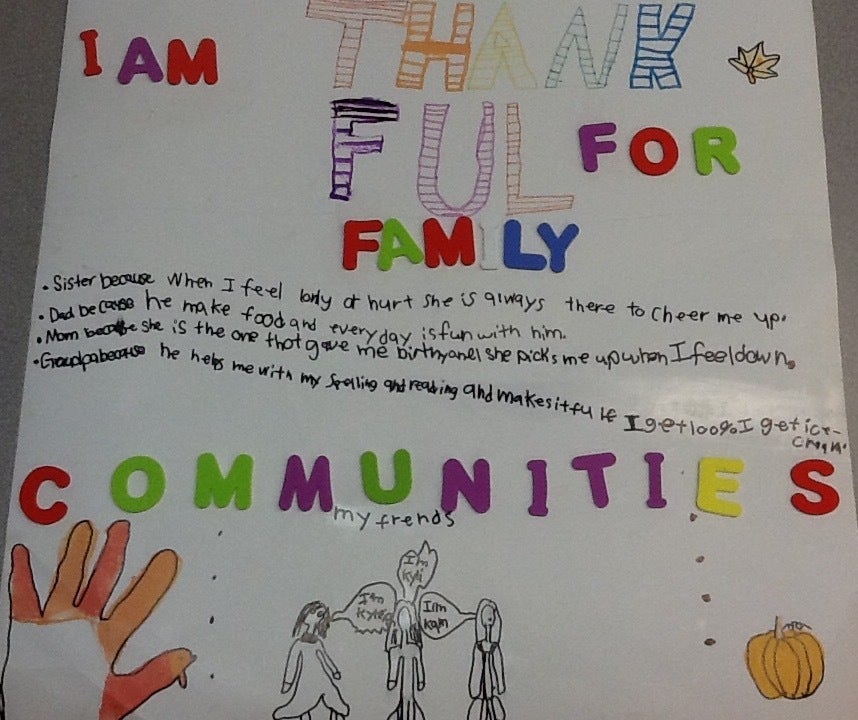 I AM THANK
FUL FOR
FAMILY
• Sister because when I feel lonly or hurt she is always there to cheer me up.
• Dad because he make food and everyday is fun with him.
• Mom because she is the one that gave me birthy and she picks me up when I feel down.
• Grandpa because he helps me with my spelling and reading and makes it fu If I get 100% I get ice-
cream.
COMMUNITIES
my frends
I'm
kyli
I'm
I'm